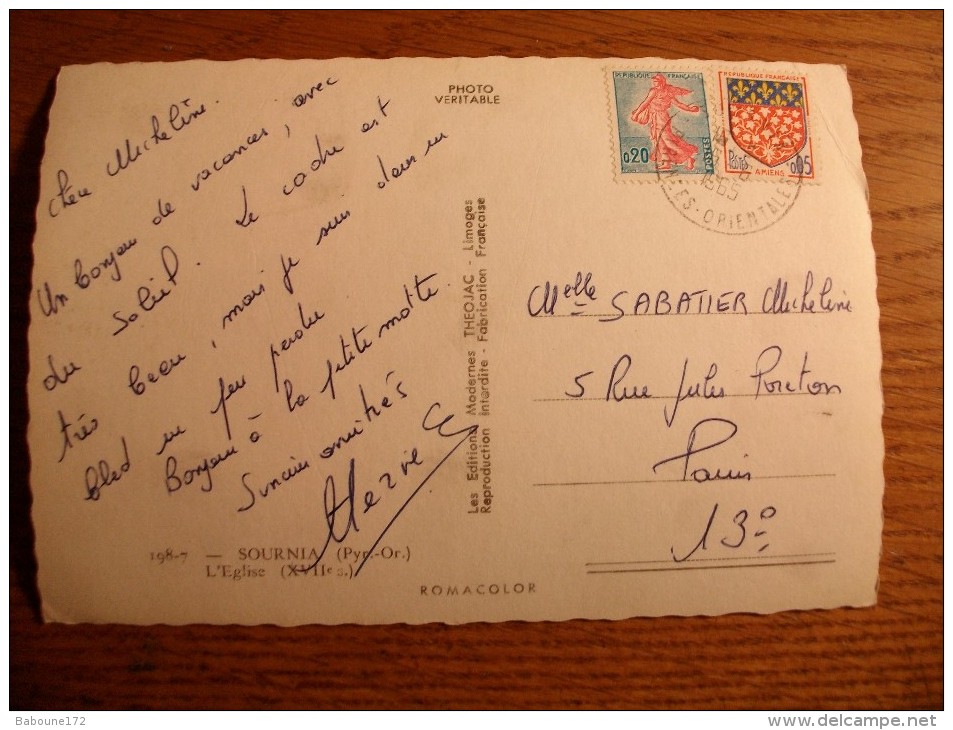 Chère Micheline.
Un bonjour de vacances, avec
du soleil. Le cadre est
très beau, mais je suis dans un
bled un peu perdu
Bonjour à la petite motte.
Sincères amitiés
Hervé
198-7 — SOURNIA (Pyr.-Or.)
L'Eglise (XVIIe s.)
PHOTO
VERITABLE
Les Editions Modernes THEOJAC - Limoges
Reproduction Interdite - Fabrication Française
ROMACOLOR
REPUBLIQUE FRANÇAISE
0,20
POSTES
REPUBLIQUE FRANÇAISE
Postes
0,05
AMIENS
1965
PYRENEES-ORIENTALES
Melle SABATIER Micheline
5 Rue Jules
Paris
13e
Baboune172
http://www.delcampe.net